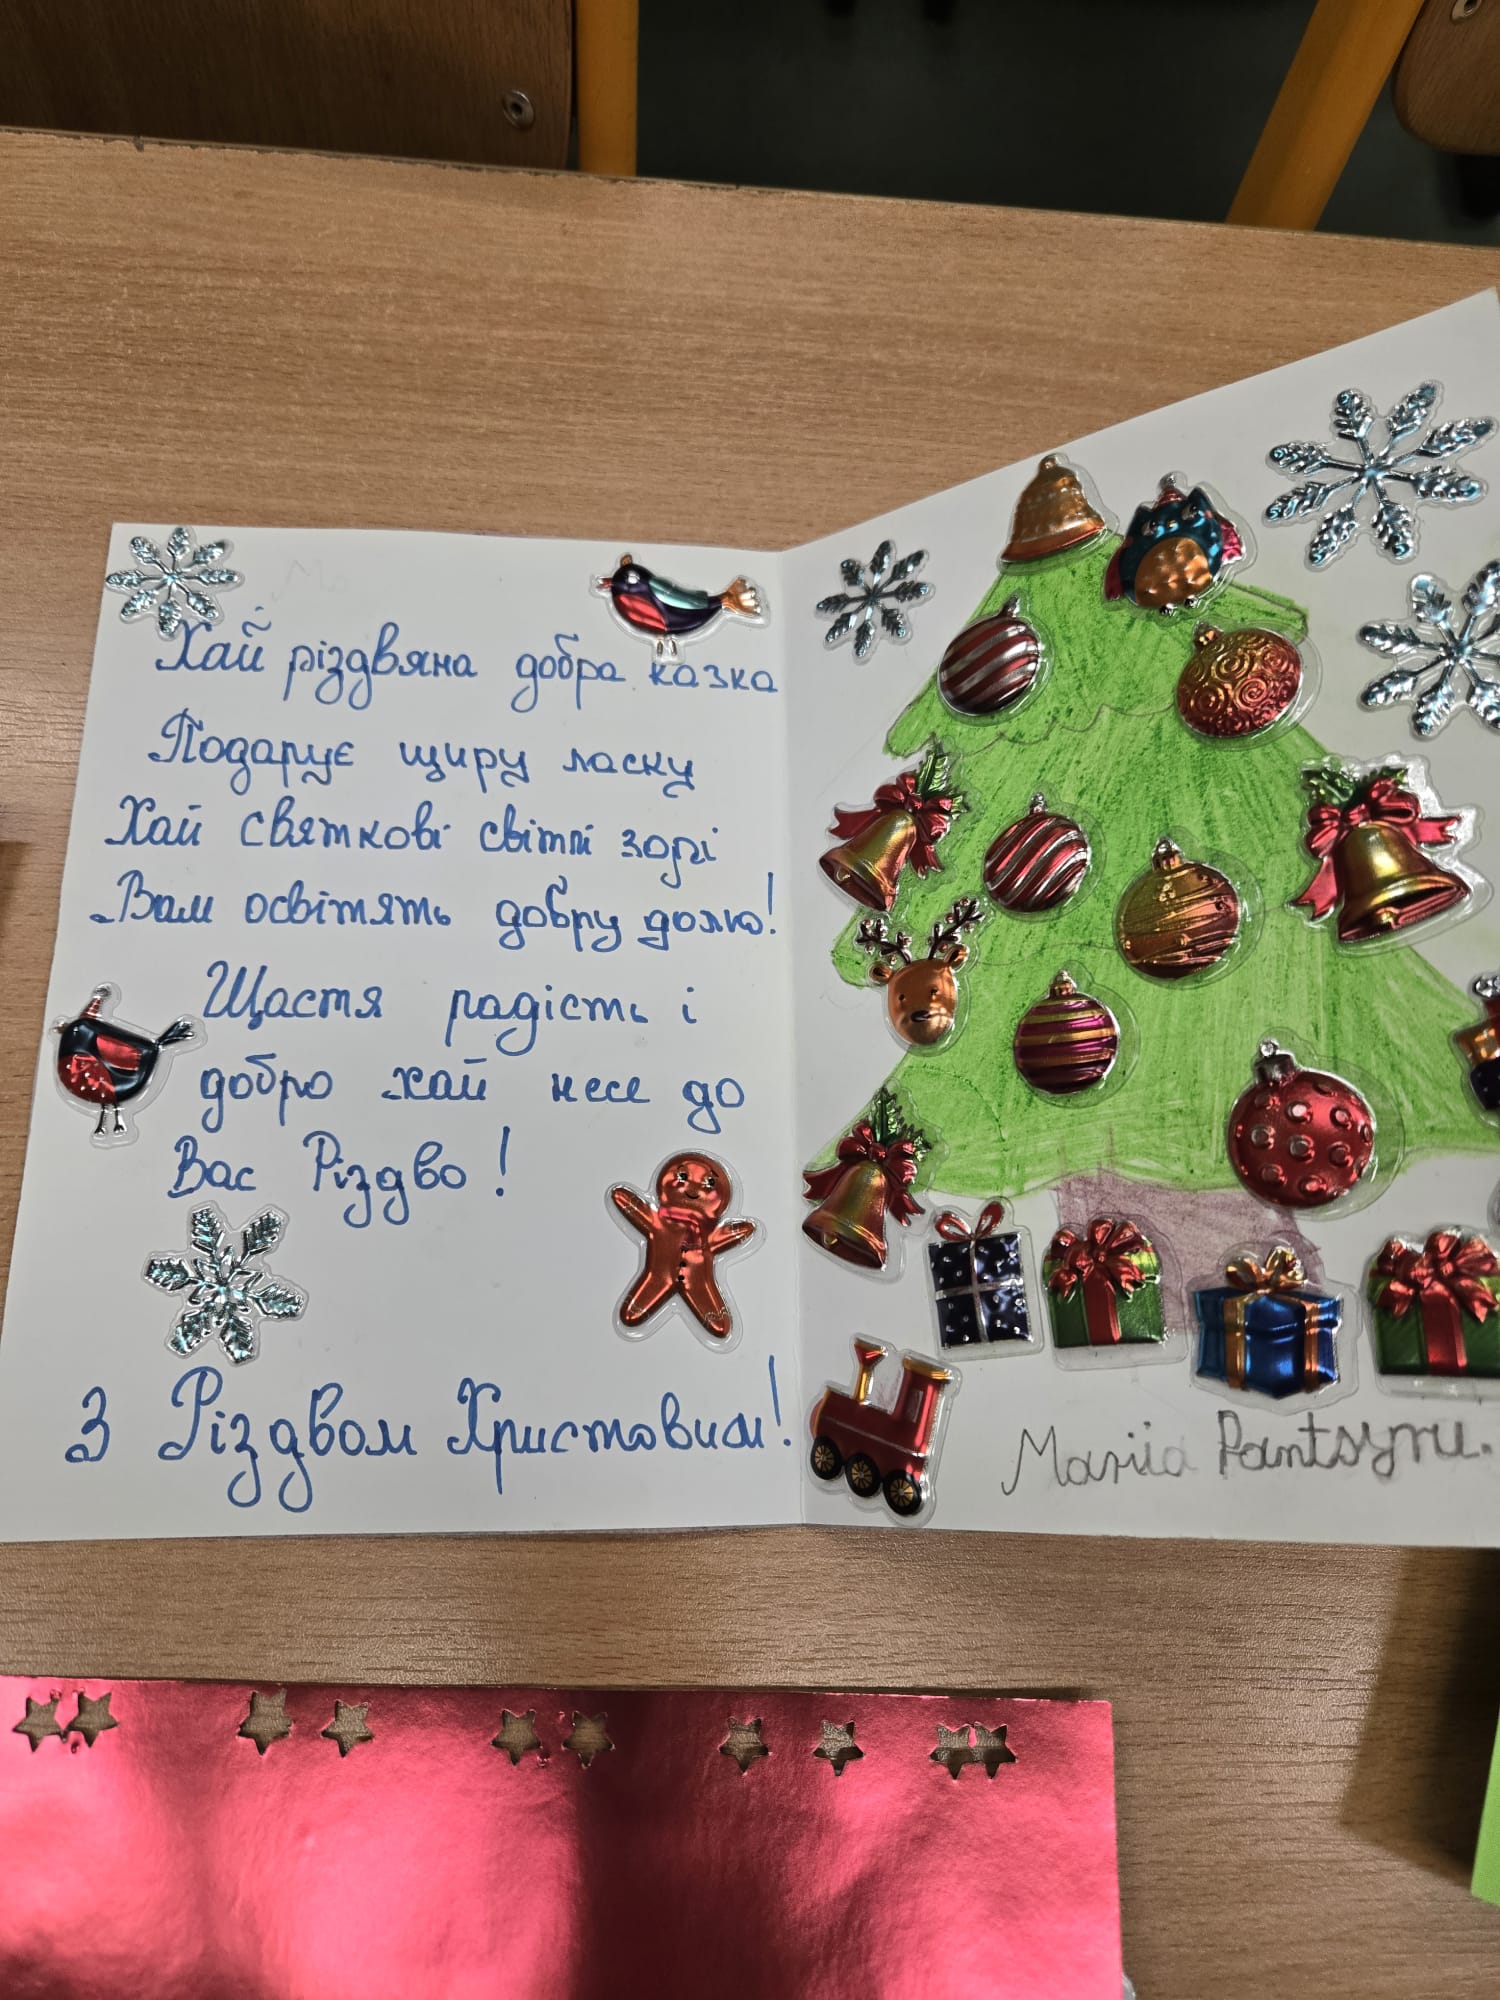 Хай різдвяна добра казка
Подарує щиру ласку
Хай святкові світлі зорі
Вам освітять добру долю!
Щастя радість і
добро хай несе до
Вас Різдво!
З Різдвом Христовим!
Mariia